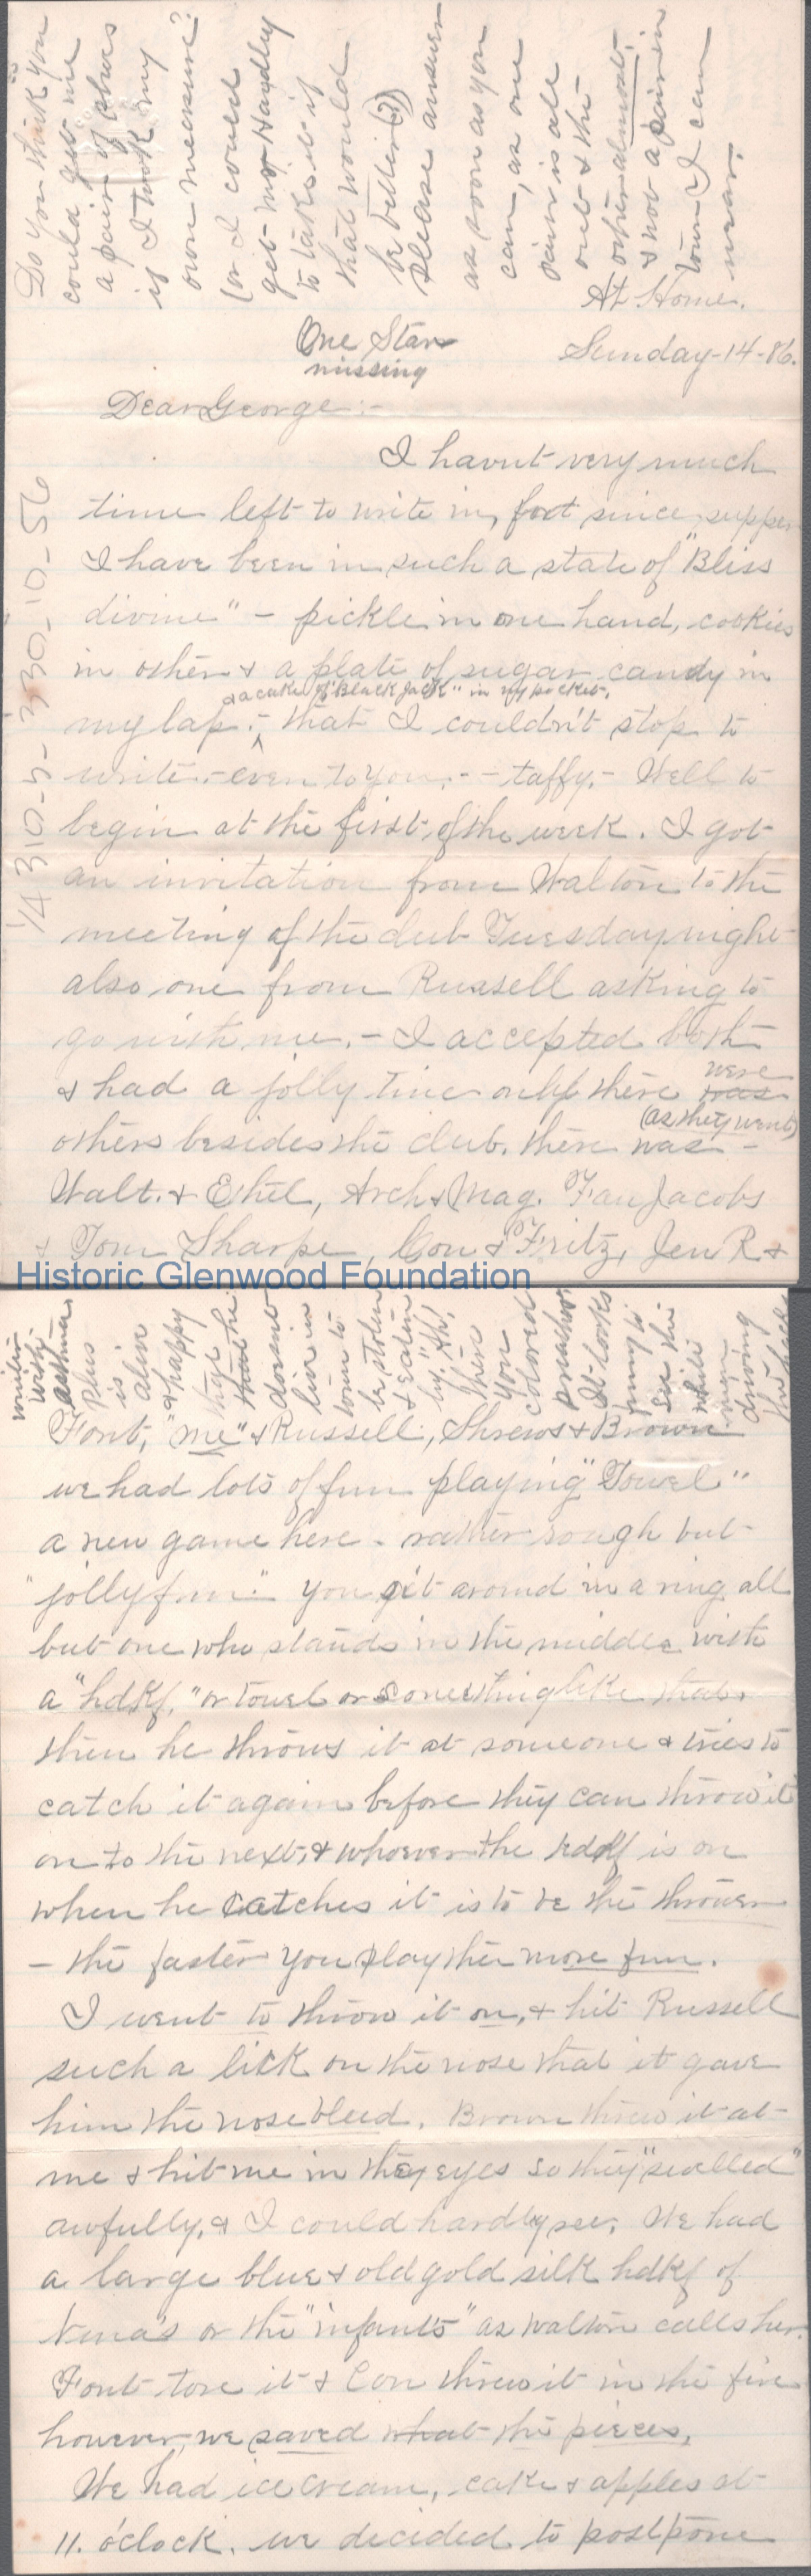 Do you think you
could get me
a pair of shoes
if I took my
own measure?
(or I could
get Mr Handley
to take it if
that would
be better (?)
Please answer
as soon as you
can, as one
pair is all
out & the
other almost,
& not a pair in
town I can
wear.
At Home.
One Star
missing
Sunday-14-86.
Dear George:-
I havnt very much
time left to write in, for since supper
I have been in such a state of "Bliss
divine" - pickle in one hand, cookies
in other & a plate of sugar candy in
& a cake of "Black Jack" in my pocket,
my lap.- that I couldn't stop to
write.-even to you.-- taffy.- Well to
begin at the first of the week. I got
an invitation from Walton to the
meeting of the club Tuesday night
also one from Russell asking to
go with me.- I accepted both
& had a jolly time only there was were
(as they went)
others besides the club. there was -
Walt. & Ethel, Arch & Mag. Fan Jacobs
& Tom Sharpe, Con & Fritz, Jen R &
14 310-5-330-10-56
Historic Glenwood Foundation
writin
with
asthma
Plus
is
alive
& happy
that he
doesnt
live in
town to
be stolen
& eaten
by. "Ah!
then
you
colored
preacher
It looks
funny to
see the
white
men
driving
Font, "me" & Russell, Shrews & Brown
we had lots of fun playing "Towel"
a new game here - rather rough but
"jolly fun." You git around in a ring all
but one who stands in the middle with
a "hdkf," or towel or something like that,
then he throws it at someone & tries to
catch it again before they can throw it
on to the next, & whoever the hdkf is on
when he catches it is to be the thrower
- the faster you play the more fun.
I went to throw it on, & hit Russell
such a lick on the nose that it gave
him the nose bleed. Brown threw it at
me & hit me in the eyes so they "swelled"
awfully, & I could hardly see. We had
a large blue & old gold silk hdkf of
Nena's or the "infants" as Walton calls her.
Font tore it & Con threw it in the fire
however, we saved what the pieces.
We had ice cream, cake & apples at
11. o'clock. we decided to postpone